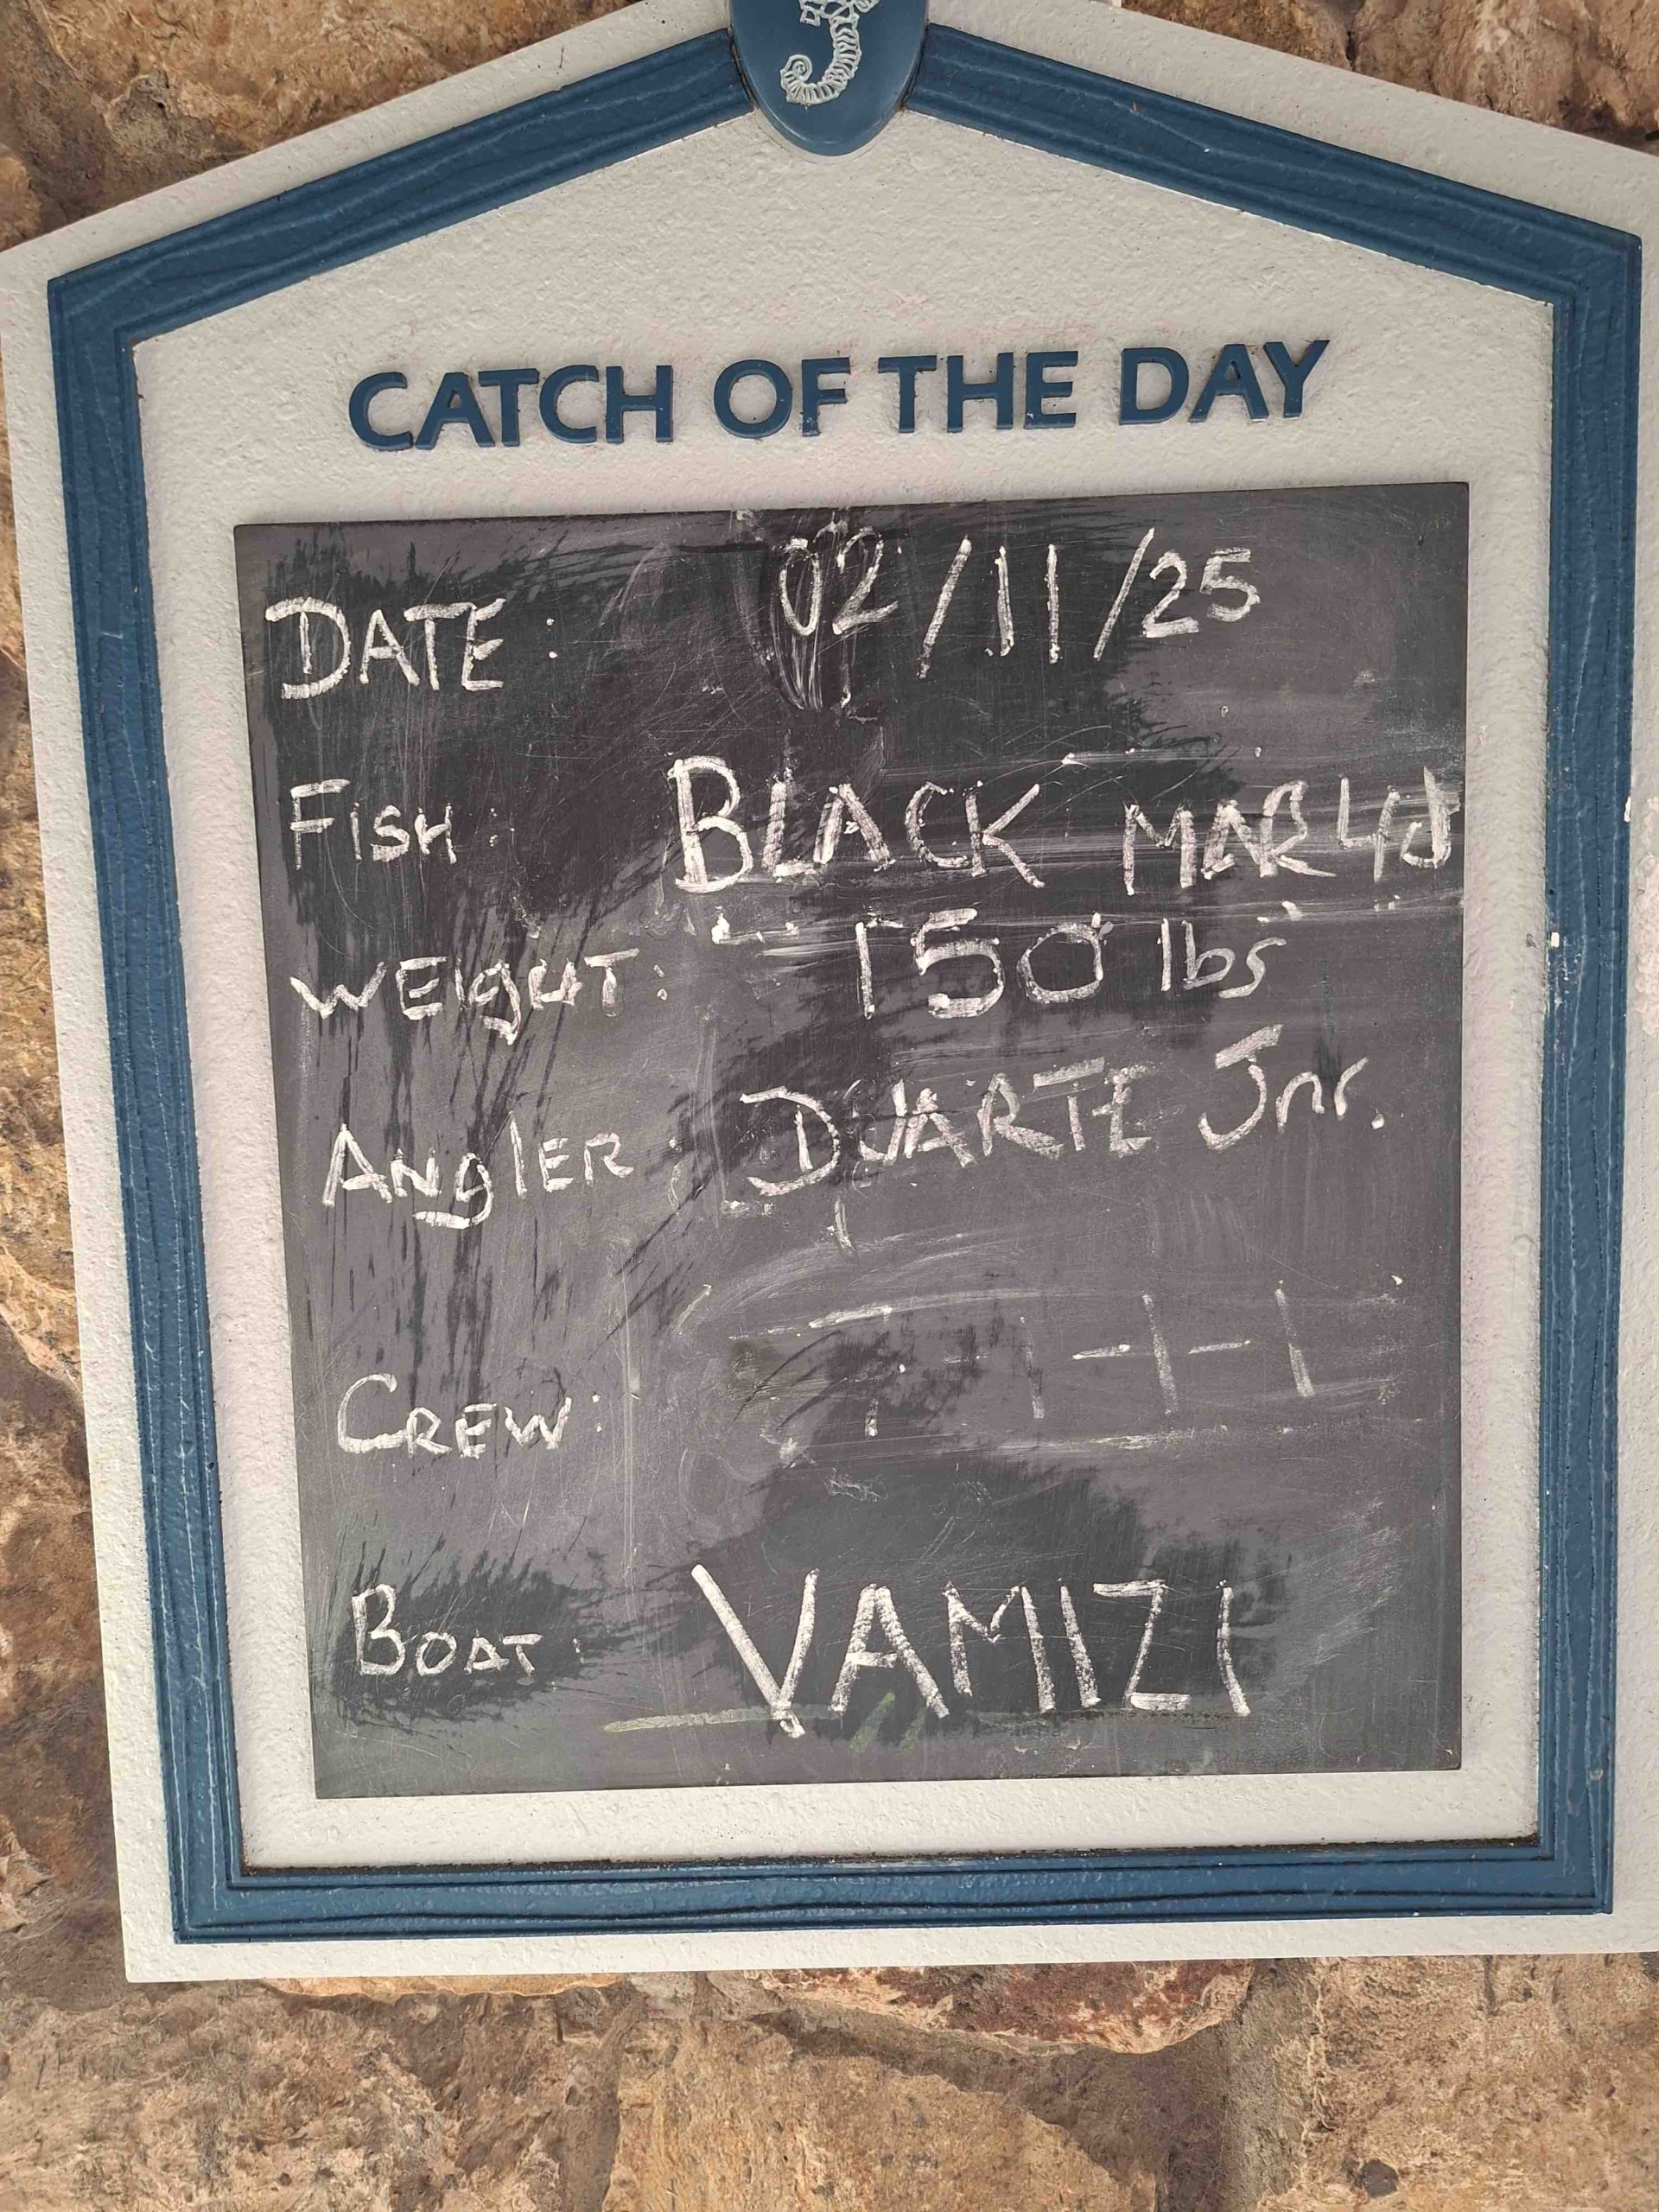 CATCH OF THE DAY
DATE: 02/11/25
FISH: BLACK
WEIGHT: 150 lbs
ANGLER: DUARTE Jnr.
CREW:
BOAT: VAMIZI